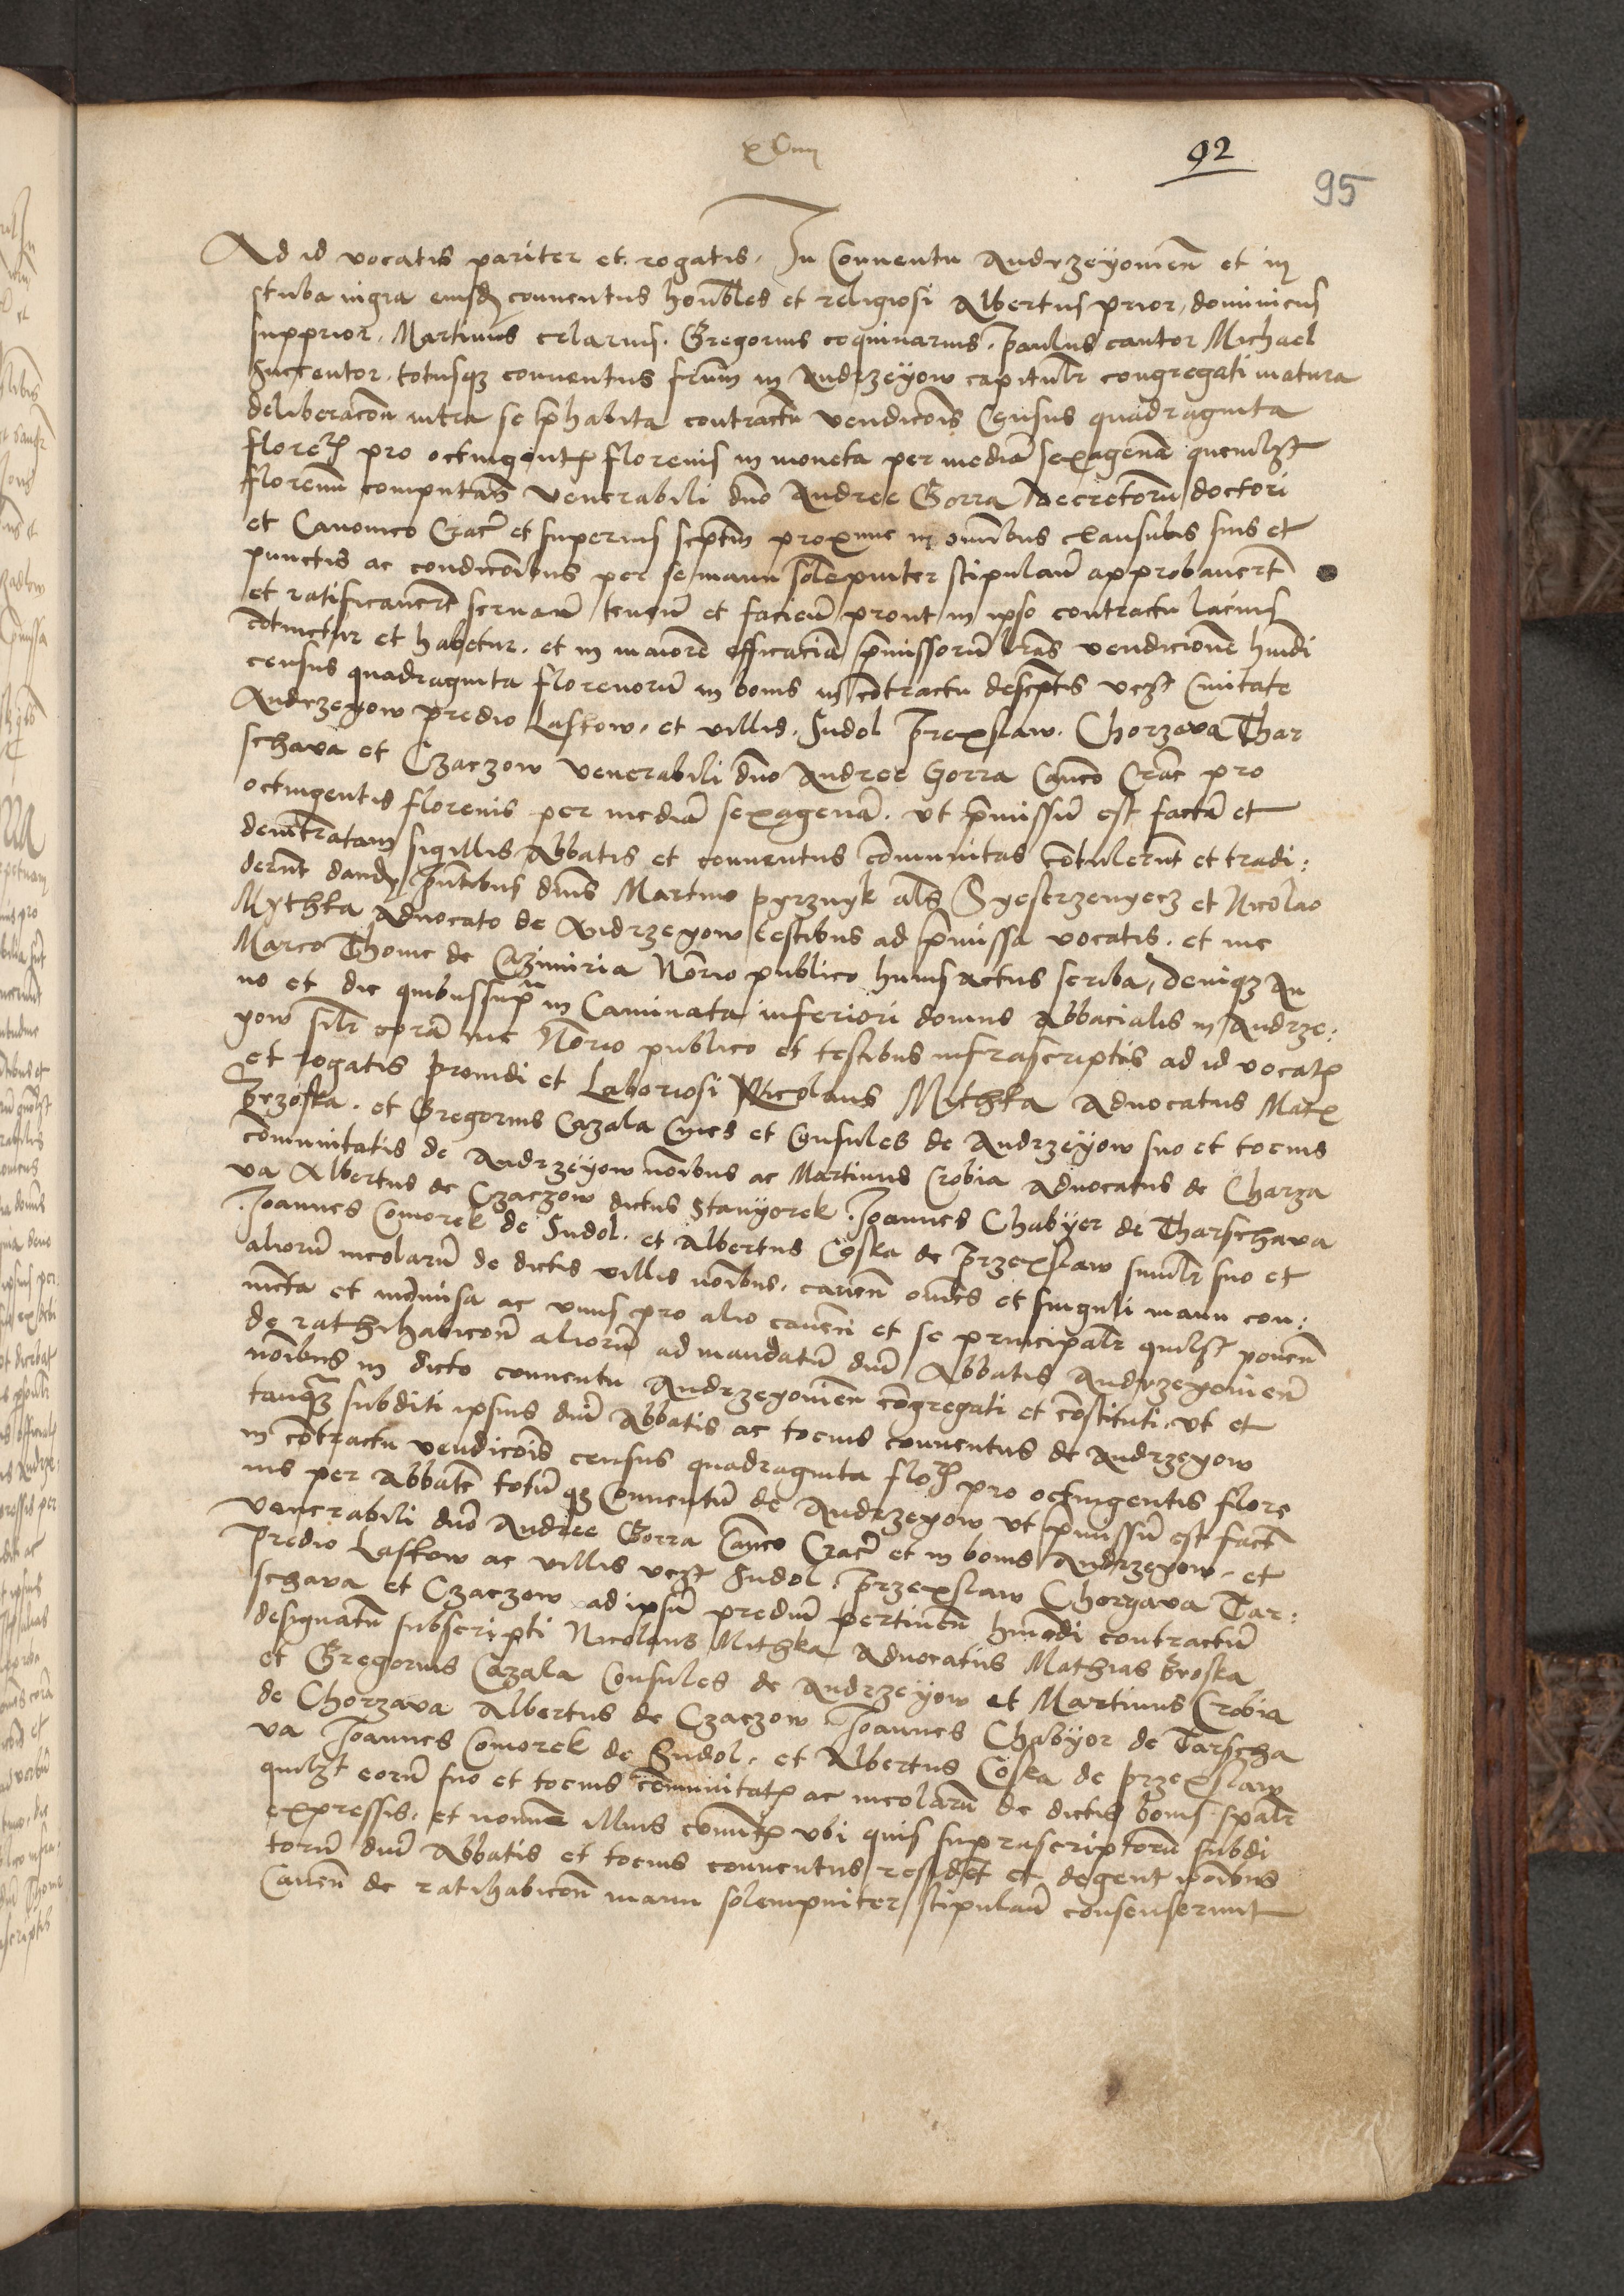 xCiiij
92
95
Ad id vocatis pariter et rogatis. In Conuentu Andrzeyouien̄ et in
stuba nigra eiusdē conuentus honb̄les et religiosi Albertus prior, dominicus
supprior, Martinus celarius. Gregorius coquinarius. Paulus cantor Michael
succentor. totusqꝫ conuentus fr̄um in Andrzeyow capitulr̄ congregati matura
deliberacōn intra se p̄habita contractū vendicōis Census quadraginta
floreꝝ pro octingentꝭ florenis in moneta per mediā sexagenā quemlꝫt
florenū computan̄ venerabili dn̄o Andree Gorra Decretorū doctori
et Canonico Crac̄ et superius scp̄tm̄ proxime in omnībus clausulis suis et
punctis ac condicōibus per se manu solēpniter stipulan̄ approbauerūt
et ratificauerūt seruarū tenerū et facierū prout in ipso contractu lacius
cōtinetur et habetur. et in maiorē efficaciā p̄missorū lr̄as vendicionē hm̄di
census quadraginta florenorū in bonis in cōtractu descp̄tis vcꝫt Ciuitate
Andrzeyow predio Laskow. et villis. Sudol Przexlaw. Chorzeva Thar
schava et Czaczow venerabili dn̄o Andree Gorra Can̄co Crac̄ pro
octingentis florenis per mediā sexagenā. vt p̄missū est factā et
sigillis Abbatis et conuentus cōmunitas cōtulerūt et tradi:
derūt p̄ntibus dn̄is Martino pyrznyk al̄s Syestrzenyecz et Nicolao
Mythka Aduocato de Andrzeyow testibus ad p̄missa vocatis. et me
Marco Thome de Cazimiria Nōrio publico huius actus scriba, Deniqꝫ An
no et die quibussup̄ in Caminata inferiori domus Abbacialis in Andrze:
yow sil̄r corā me Nōrio publico et testibus infrascriptis ad id vocatꝭ
et rogatis prouidi et Laboriosi Nicolaus Mithka Aduocatus Matꝭ
Brzoska. et Gregorius Cazala Ciues et Consules de Andrzeyow suo et tocius
comunitatis de Andrzeyow nōibus ac Martinus Crobia Aduocatus de Charza
va Albertus de Czaczow dictus Stanyorek. Joannes Chabyer de Tharschava
Joannes Comorek de Sudol. et Albertus Coska de Przexlaw similr̄ suo et
aliorū incolarū de dictis villis nōibus. cauen̄ om̄es et singuli manu con:
iuncta et indiuisa ac vnus pro alio cauen̄ et se principalr̄ quilꝫt ponen̄
de rathihabicōne aliorū ad mandatū dn̄i Abbatis Andrzeyouien̄
nōibus in dicto conuentu Andrzeyouien̄ cōgregati et cōstituti. vt et
tanqꝫ subditi ipsius dn̄i Abbatis ac tocius conuentus de Andrzeyow
in cōtractu vendicōis census quadraginta floꝝ pro octingentis flore
nis per Abbatē totūqꝫ Conuentū de Andrzeyow vt p̄missū est factū
venerabili dn̄o Andree Gorra Can̄co Crac̄ et in bonis Andrzeyow. et
predio Laskow ac villis vcꝫt Sudol. Przexlaw Chorzava Tar:
schava et Czaczow ad ipsū prediū pertinen̄ hm̄odi contractum
designatū subscripti Nicolaus Mithka Aduocatus Mathias Broska
et Gregorius Cazala Consules de Andrzeyow et Martinus Crobia
de Chorzava Albertus de Czaczow Joannes Chabyor de Tarscha
va Joannes Comorek de Sudol. et Albertus Coska de przexlaw
quilꝫt eorū suo et tocius cōmunitatꝭ ac incolarū de dictis bonis spal̄r
expressis. et nomīe illius cōmūitꝭ vbi quis suprascriptorū subdi
torū dn̄i Abbatis et tocius conuentus residet et degent nōibus
Cauen̄ de ratihabicōne manu solempniter stipulan̄ consenserunt